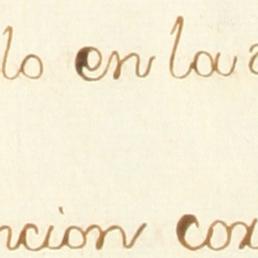 lo en la
ncion cox